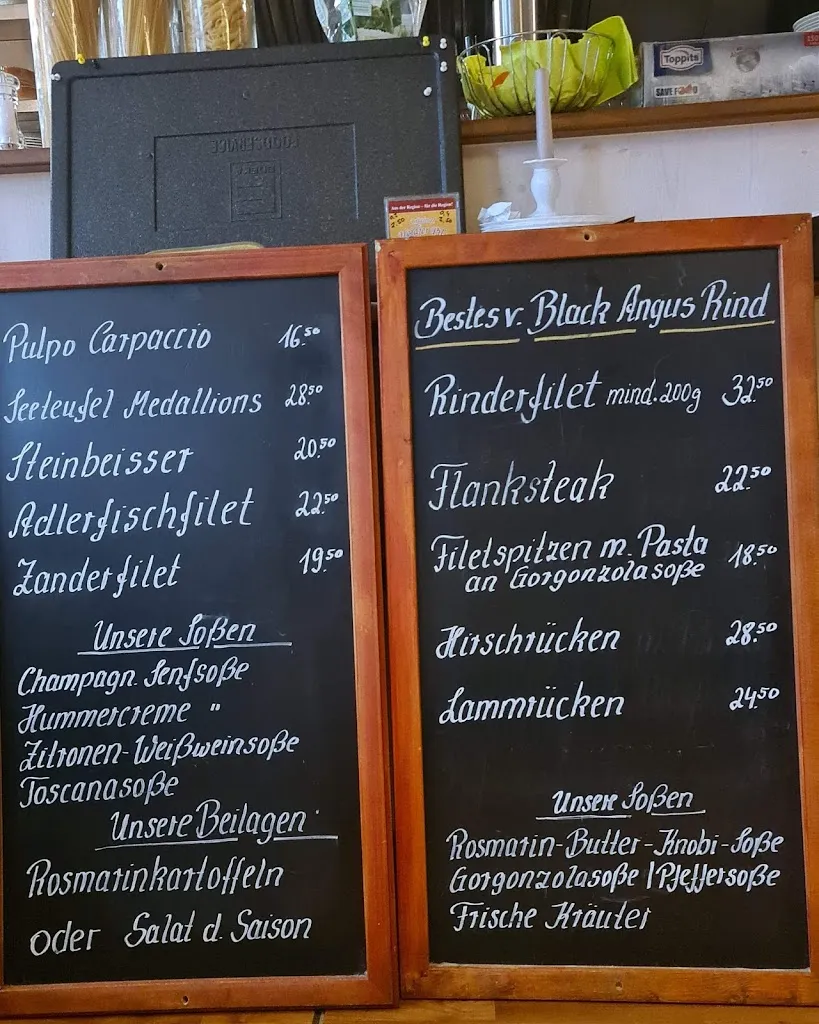 FOODSERVICE
Toppits
Aus der Region - für die Region!
Pulpo Carpaccio 16.50
Seeteufel Medallions 28.50
Steinbeisser 20.50
Adlerfischfilet 22.50
Zanderfilet 19.50
Unsere Soßen
Champagn. Senfsoße
Hummercreme "
Zitronen-Weißweinsoße
Toscanasoße
Unsere Beilagen
Rosmarinkartoffeln
oder Salat d. Saison
Bestes v. Black Angus Rind
Rinderfilet mind. 200g 32.50
Flanksteak 22.50
Filetspitzen m. Pasta
an Gorgonzolasoße 18.50
Hirschrücken 28.50
Lammrücken 24.50
Unsere Soßen
Rosmarin-Butter-Knobi-Soße
Gorgonzolasoße | Pfeffersoße
Frische Kräuter